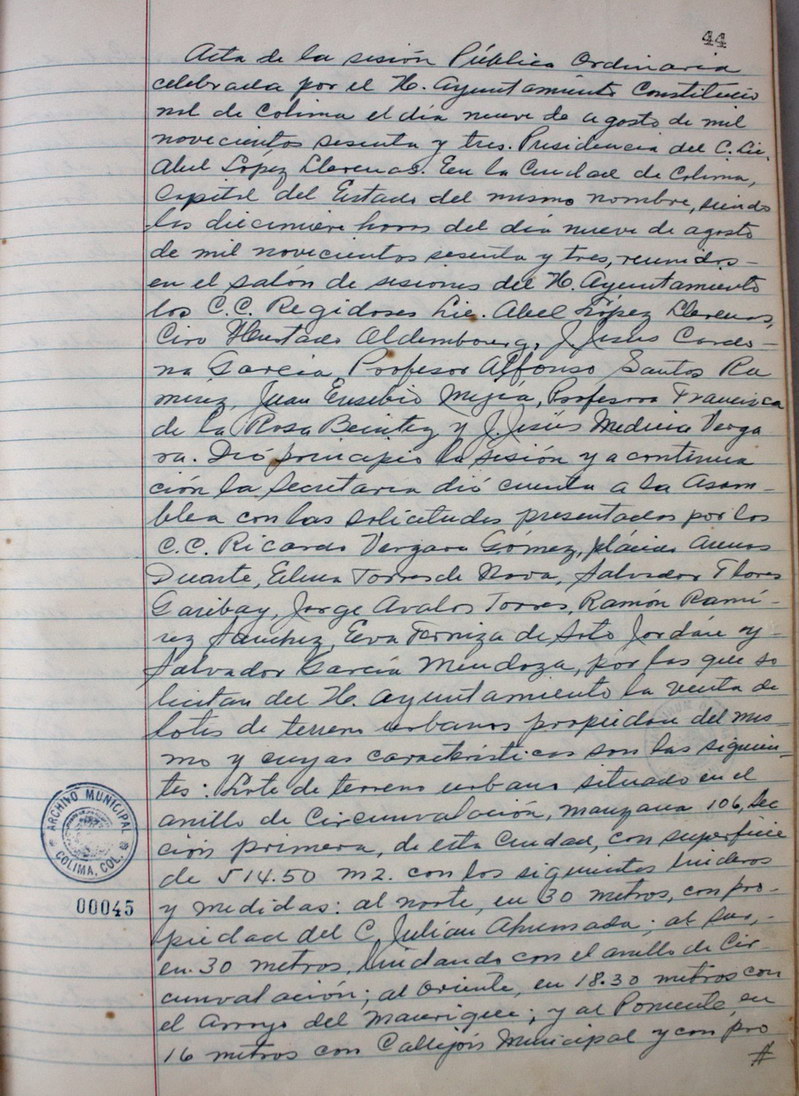 44
Acta de la sesión Pública Ordinaria
celebrada por el H. Ayuntamiento Constitucio
nal de Colima el día nueve de agosto de mil
novecientos sesenta y tres. Presidencia del C. Lic.
Abel López Llerenas. En la Ciudad de Colima,
Capital del Estado del mismo nombre, siendo
las diecinueve horas del día nueve de agosto
de mil novecientos sesenta y tres, reunidos-
en el salón de sesiones del H. Ayuntamiento
los C.C. Regidores Lic. Abel López Llerenas,
Ciro Hurtado Aldembourg, J. Jesús Cardo-
na García, Profesor Alfonso Santos Ra
mírez, Juan Eusebio Mejía, Profesora Francisca
de la Rosa Beinitez y J. Jesús Medina Verga
ra. Dió principio la sesión y a continua
ción la Secretaria dió cuenta a la Asam-
blea con las solicitudes presentadas por los
C.C. Ricardo Vergara Gómez, Plácido
Duarte, Elena Torres de Nava, Salvador Flores
Garibay, Jorge Avalos Torres, Ramón Ramí-
rez Sánchez, Eva Terniza de Soto Jordán y-
Salvador García Mendoza, por las que so
licitan del H. Ayuntamiento la venta de
lotes de terreno urbanos propiedad del mis-
mo y cuyas características son las siguien-
tes: Lote de terreno urbano situado en el
anillo de Circunvalación, manzana 106, Sec
ción primera, de esta Ciudad, con superficie
de 514.50 m2. con los siguientes linderos
y medidas: al norte, en 30 metros, con pro-
piedad del C. Julián Ahumada; al sur,-
en 30 metros, lindando con el anillo de Cir-
cunvalación; al Oriente, en 18.30 metros con
el Arroyo del Manrique; y al Poniente, en
16 metros con Callejón Municipal y con pro
#
ARCHIVO MUNICIPAL
COLIMA, COL.
00045